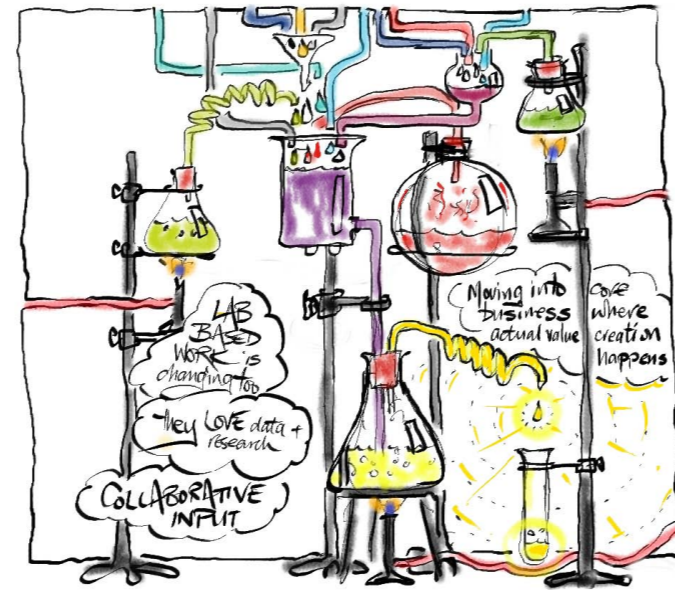 LAB
BASED
WORK is
changing too
they LOVE data +
research
COLLABORATIVE
INPUT
Moving into
business
actual value
core
where
creation
happens